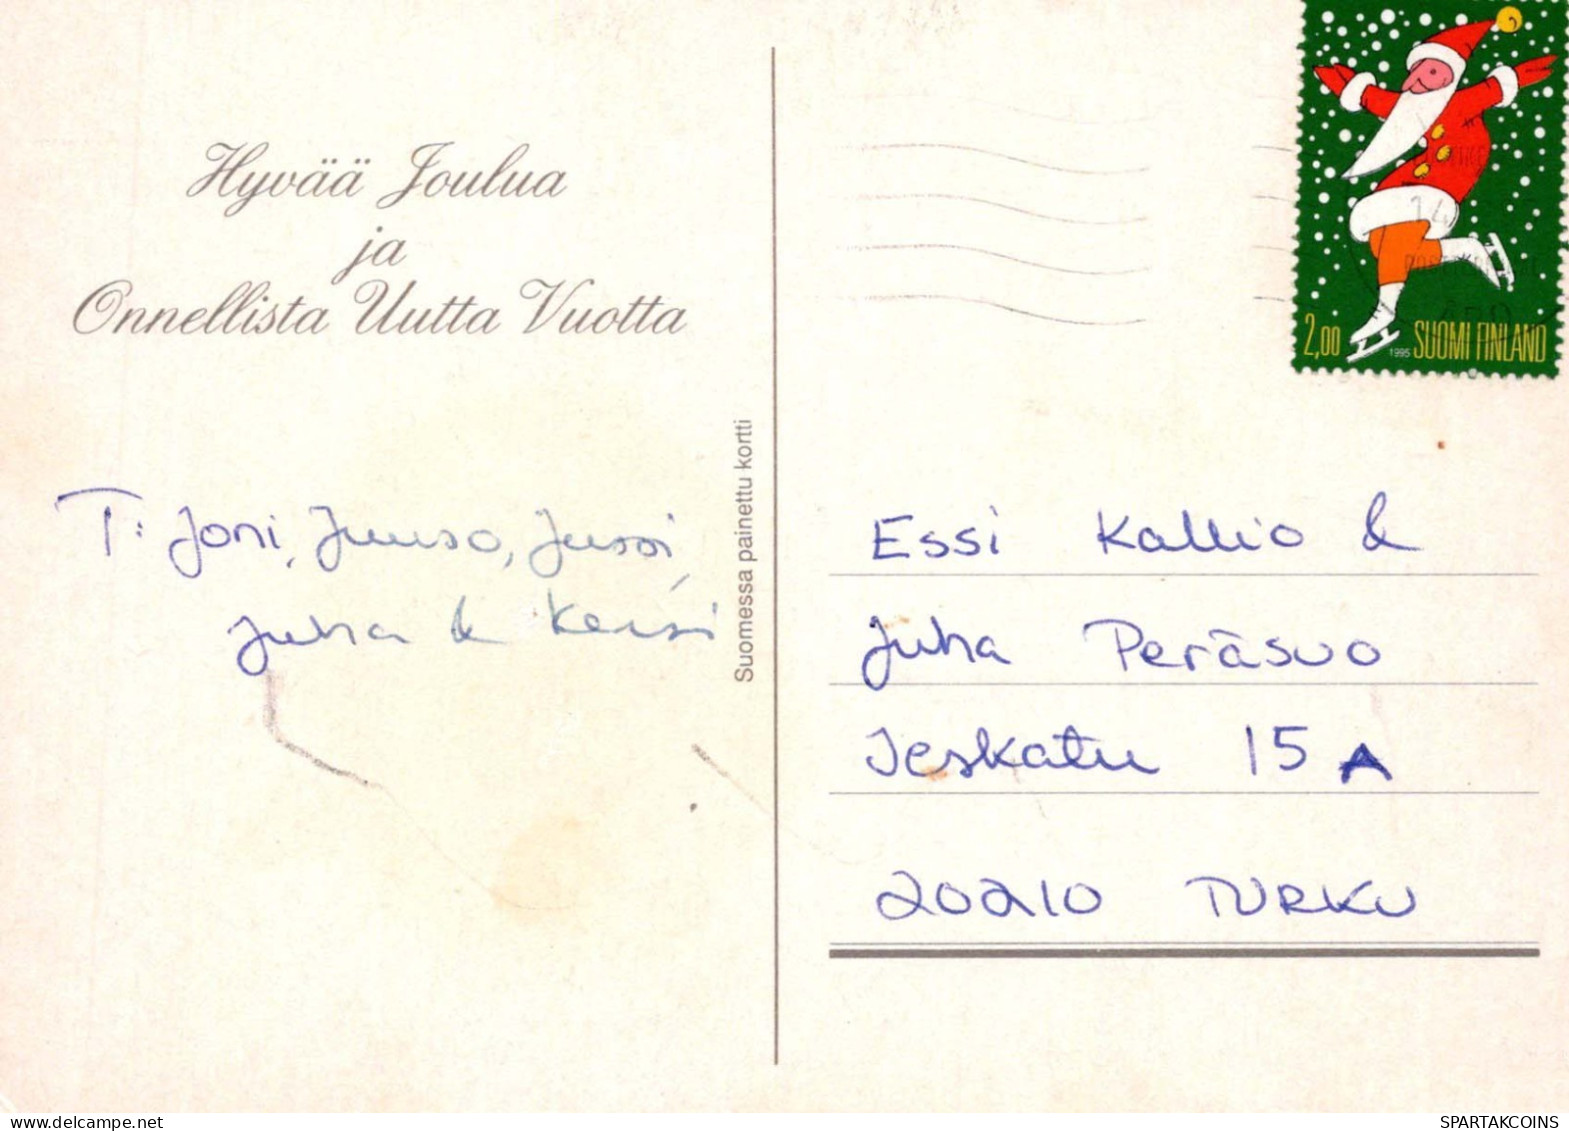 Hyvää Joulua
ja
Onnellista Uutta Vuotta
T: Joni, Juuso, Jussi,
Juha & Kirsi
Suomessa painettu kortti
2,00 1995 SUOMI FINLAND
Essi Kallio &
Juha Peräsuo
Ieskatu 15 A
20210 TURKU
SPARTAKCOINS